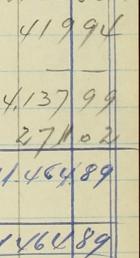 419 94
— —
4,137 99
271 02
1,464 89
1,464 89